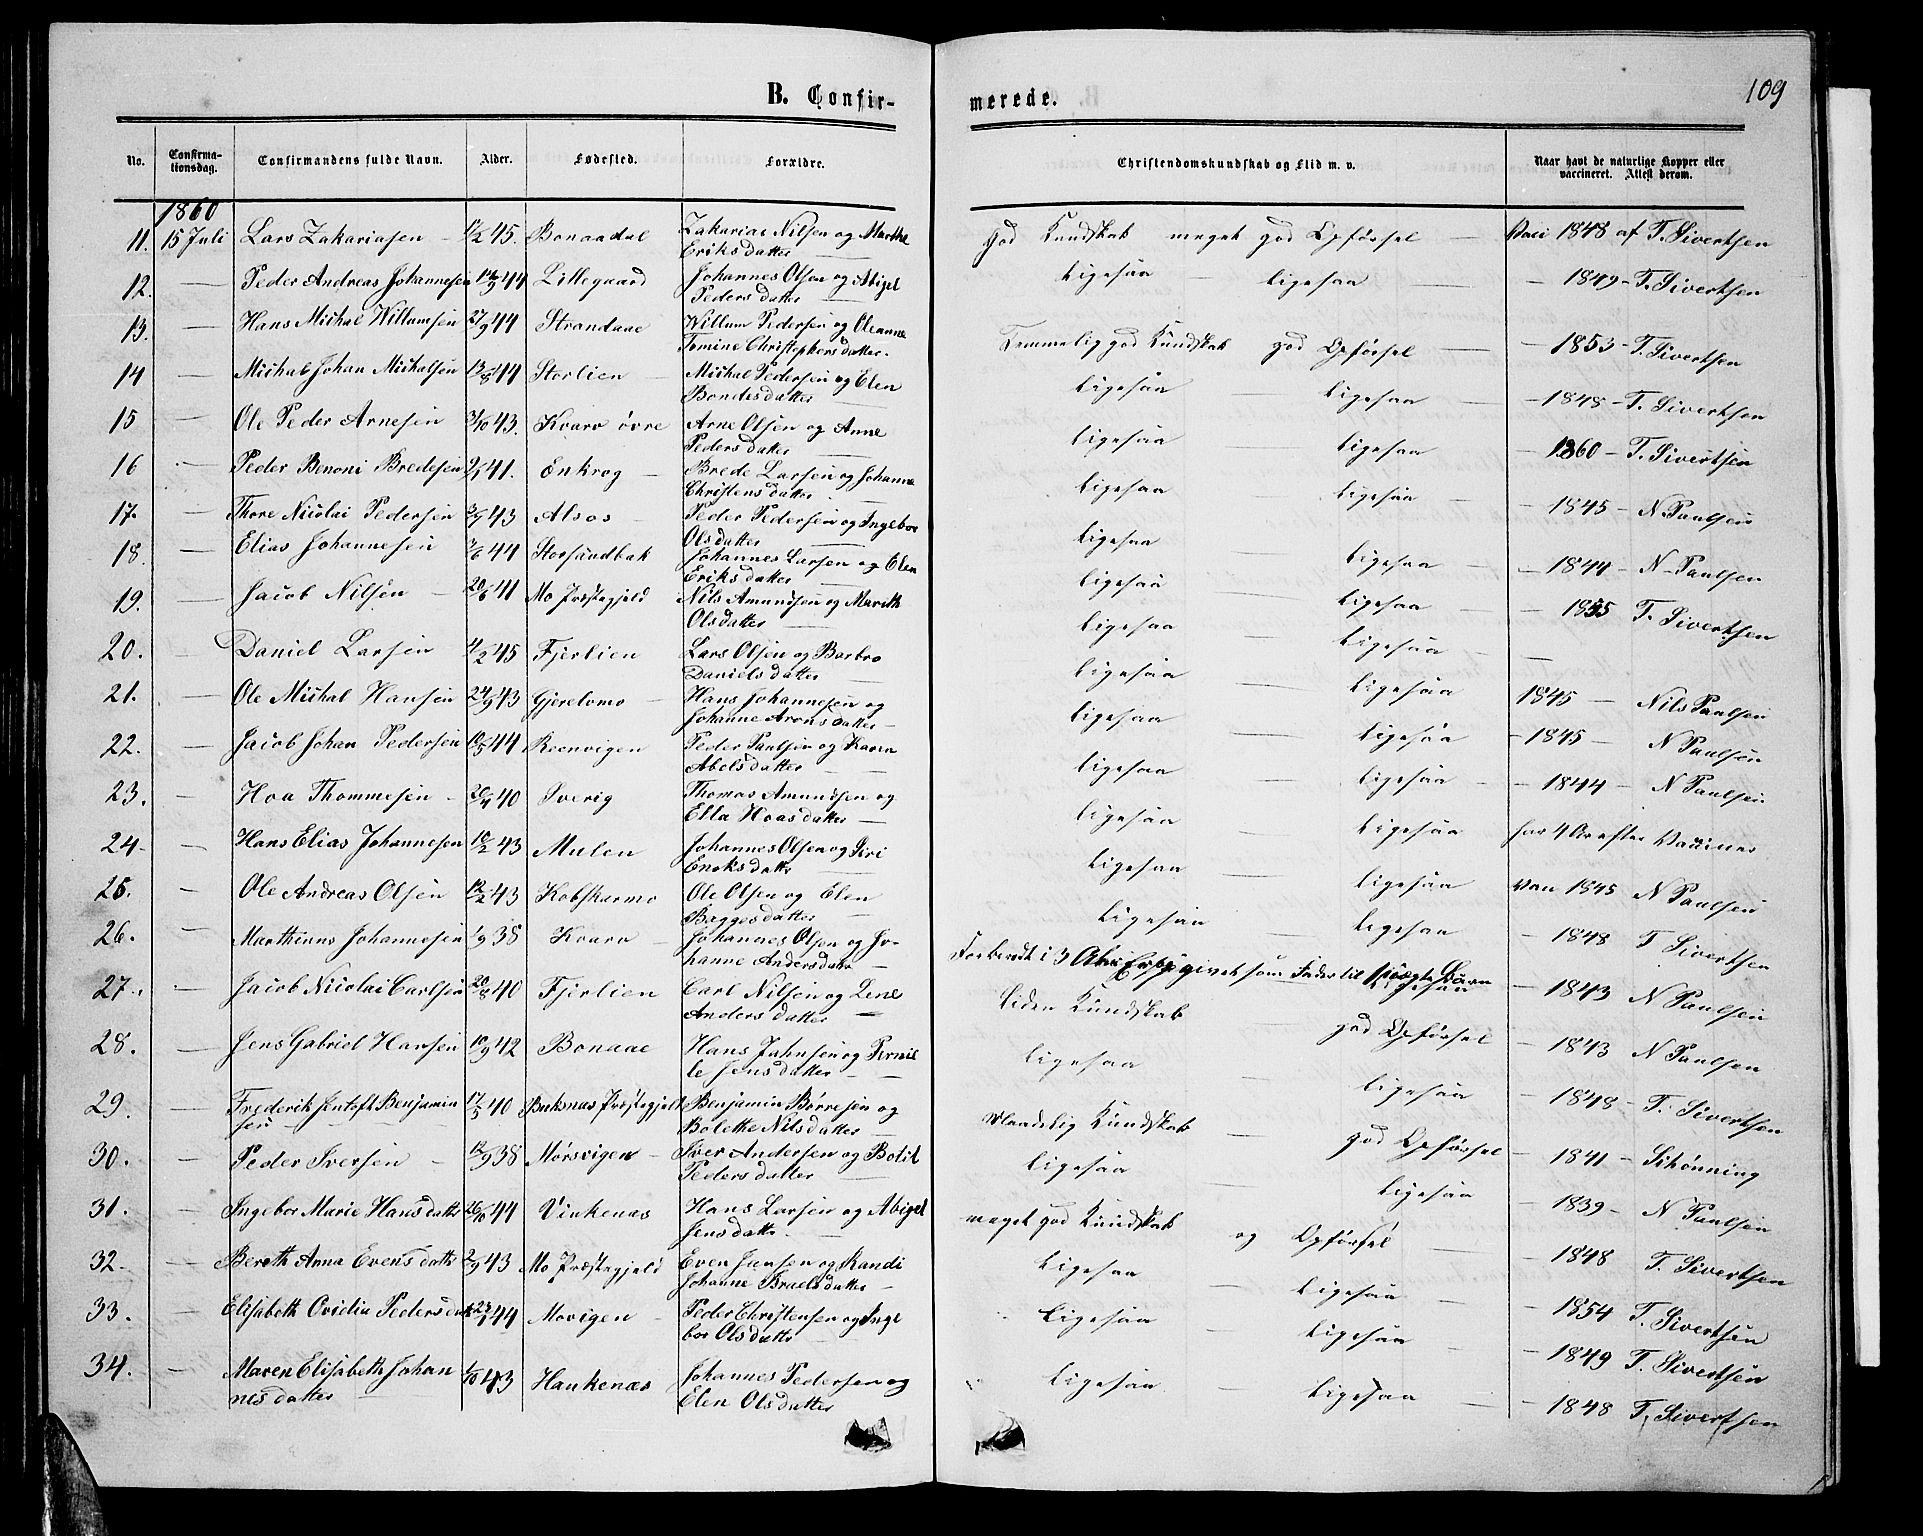 109
B. Confir-
merede.
No.
Confirma-
tionsdag.
Confirmandens fulde Navn.
Alder.
Fødested.
Forældre.
Christendomskundskab og Flid m. v.
Naar havt de naturlige Kopper eller
vaccineret. Attest derom.
1860
11. 15 Juli Lars Zakariasen 45. Bonaadal Zakarias Nilsen og Marthe
Eriksdatter
god Kundskab meget god Opførsel Vaci 1848 af T. Sivertsen
12. Peder Andreas Johannesen 44 Lillegaard Johannes Olsen og Abigel
Pedersdatter
ligesaa ligesaa 1849 - T. Sivertsen
13. Hans Michal Willumsen 27/9 44 Strandaae Willum Pedersen og Oleanne
Tomine Christophersdatter
Temmelig god Kundskab god Opførsel 1853 - T. Sivertsen
14 Michal Johan Michalsen 13/8 44 Storlien Michal Pedersen og Elen
Bondesdatter
ligesaa ligesaa 1848 - T. Sivertsen
15 Ole Peder Arnesen 3/10 43. Kvarv øvre Arne Olsen og Anne
Pedersdatter
ligesaa ligesaa 1860 - T. Sivertsen
16 Peder Benoni Bredesen 41. Enkrog Brede Larsen og Johanne
Christensdatter
ligesaa ligesaa 1845 - N Paulsen
17. Thore Nicolai Pedersen 43 Alsos Peder Pedersen og Ingebor
Olsdatter
ligesaa ligesaa 1844 - N Paulsen
18. Elias Johannesen 44 Storsandbak Johannes Larsen og Elen
Eriksdatter
ligesaa ligesaa 1855 T. Sivertsen
19. Jacob Nilsen 20/6 41 Mo Præstegjeld Nils Amundsen og Marith
Olsdatter
ligesaa ligesaa
20. Daniel Larsen 4/2 45 Fjerlien Lars Olsen og Barbro
Danielsdatter
ligesaa ligesaa 1845 - Nils Paulsen
21. Ole Michal Hansen 24/9 43 Gjerelvmo Hans Johannesen og
Johanne Aronsdatter
ligesaa ligesaa 1845 - N Paulsen
22. Jacob Johan Pedersen 44 Reenvigen Peder Paulsen og Karen
Abelsdatter
ligesaa ligesaa 1844 - N Paulsen
23. Hoa Thommesen 40 Sverig Thomas Amundsen og
Ella Hoasdatter
ligesaa ligesaa har 4 Ar efter Vacciner
24 Hans Elias Johannesen 43 Mulen Johannes Olsen og Siri
Enoksdatter
ligesaa ligesaa Vac 1845 N Paulsen
25. Ole Andreas Olsen 12/2 43 Kobskarmo Ole Olsen og Elen
Baggesdatter
ligesaa ligesaa 1848 T Sivertsen
26. Marthinus Johannesen 1/9 38 Kvarv Johannes Olsen og Jo-
hanne Andersdatter
ligesaa 1843 N Paulsen
27. Jacob Nicolai Carlsen 20/8 40 Fjerlien Carl Nilsen og Lene
Andersdatter
liden Kundskab god Opførsel 1843 N Paulsen
28. Jens Gabriel Hansen 10/9 42 Bonaae Hans Jahnsen og Pernil
le Jensdatter
ligesaa ligesaa 1848 - T. Sivertsen
29. Frederik Jentoft Benjamin
sen
17/3 40 Buksnes Præstegjeld Benjamin Børresen og
Bolethe Nilsdatter
Maadelig Kundskab god Opførsel 1841 - Schønning
30. Peder Iversen 12/9 38 Mørsvigen Iver Andersen og Bolit
Pedersdatter
ligesaa ligesaa 1839 - N Paulsen
31. Ingebor Marie Hansdatter 26/10 44 Vinkenæs Hans Larsen og Abigel
Jensdatter
meget god Kundskab og Opførsel 1848 T. Sivertsen
32. Bereth Anna Evensdatter 2/9 43 Mo Præstegjeld Even Jensen og Randi
Johanne Braelsdatter
ligesaa ligesaa 1854 T. Sivertsen
33. Elisabeth Ovidia Pedersdatt 44 Movigen Peder Christensen og Inge
bor Olsdatter
ligesaa ligesaa 1849 T. Sivertsen
34. Maren Elisabeth Johan
nesdatter
43 Haukenæs Johannes Pedersen og
Elen Olsdatter
ligesaa ligesaa 1848 T. Sivertsen